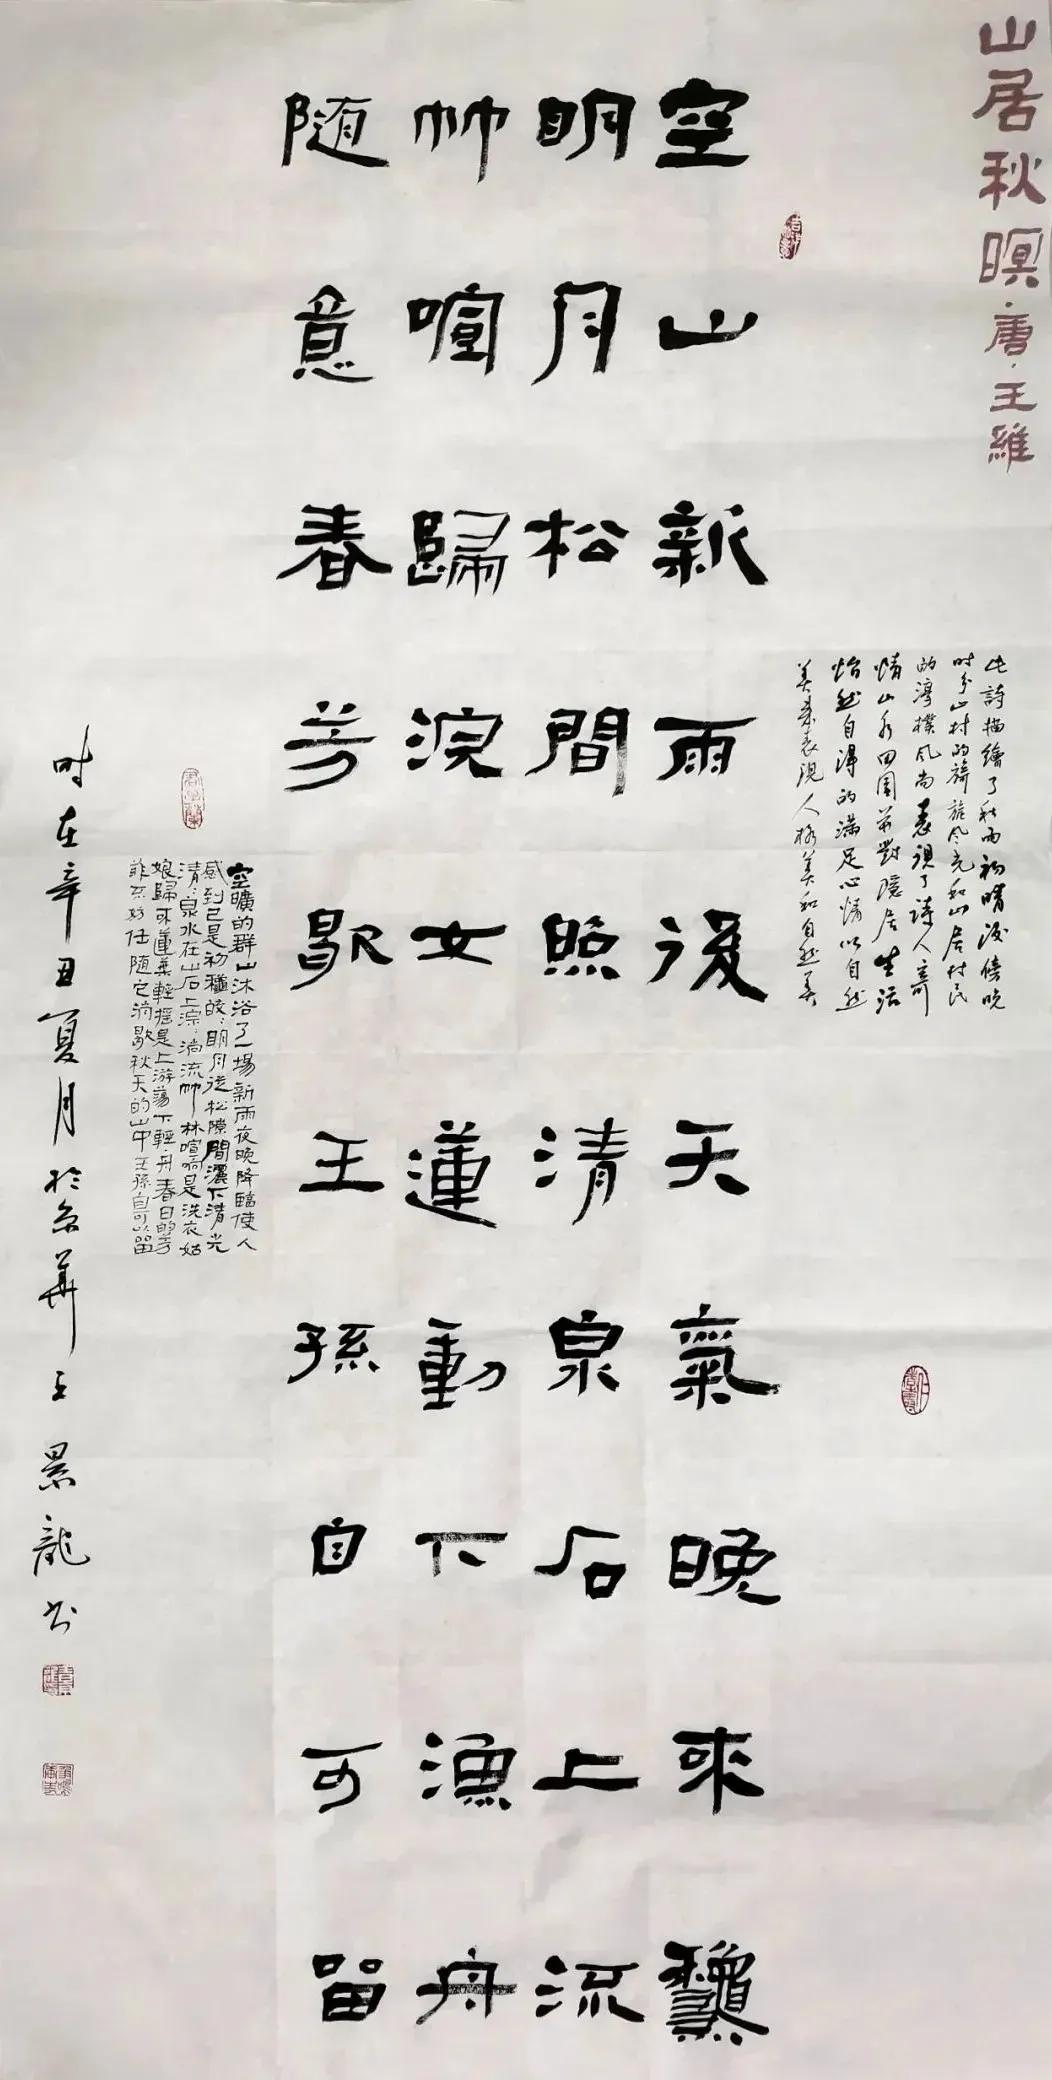 山居秋暝·唐·王維
此詩描繪了秋雨初晴後傍晚
时分山村的旖旎风光和山居村民
的淳樸风尚表現了诗人寄
情山水田園并對隱居生活
怡然自得的满足心情以自然
美来表現人格美和自然美
空山新雨後天氣晚來龝
明月松間照清泉石上流
竹喧歸浣女蓮動下漁舟
随意春芳歇王孫自可留
空曠的群山沐浴了一場新雨夜晚降臨使人
感到已是初龝皎皎明月従松隙間灑下清光
清清泉水在山石上淙淙淌流竹林喧响是洗衣姑
娘歸来蓮葉輕摇是上游蕩下輕舟春日的芳
菲不妨任随它消歇秋天的山中王孫自可以留
时在辛丑夏月於京華王景龍书